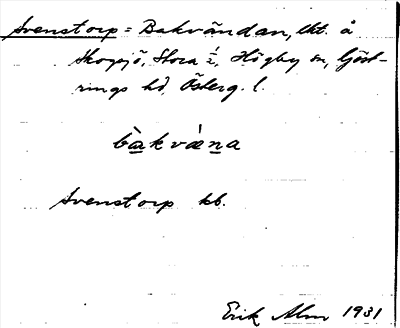 Svenstorp = Bakvändan, lht. å
Skogsjö, Stora ..., Högby sn, Göst-
rings hd, Österg. l.
bakväna
Svenstorp kb.
Erik Alm 1931